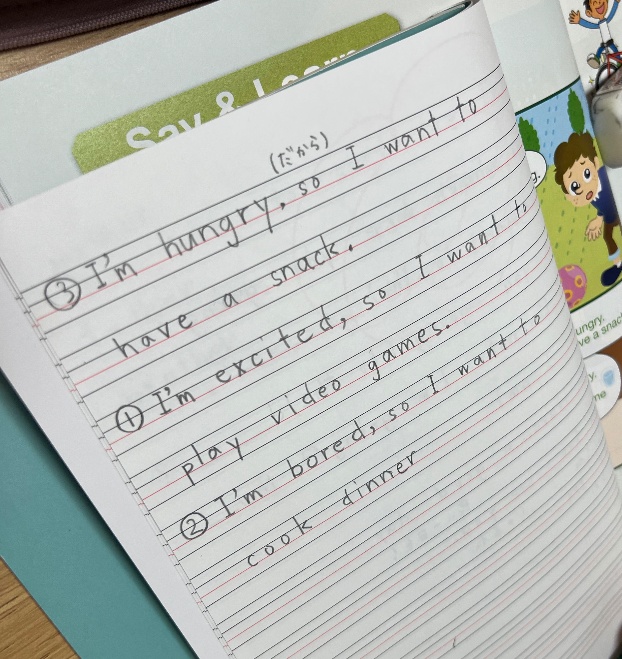 Say & Learn
(だから)
③ I'm hungry, so I want to
have a snack.
① I'm excited, so I want to
play video games.
② I'm bored, so I want to
cook dinner
g.
ungry.
ve a snac
y.
me